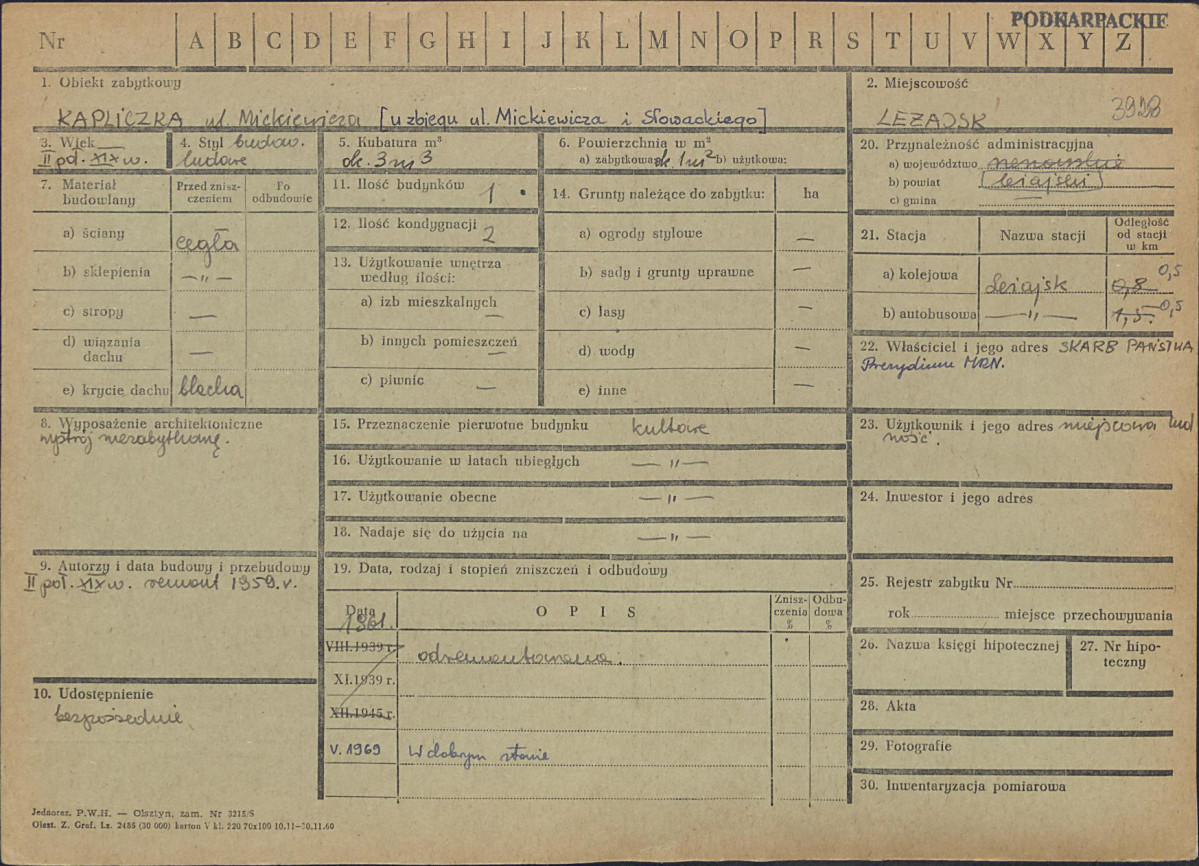 PODKARPACKIE
Nr A B C D E F G H I J K L M N O P R S T U V W X Y Z
1. Obiekt zabytkowy
KAPLICZKA ul. Mickiewicza [u zbiegu ul. Mickiewicza i Słowackiego]
2. Miejscowość
3928
LEŻAJSK
3. Wiek
II poł. XIX w.
4. Styl budow.
ludowe
5. Kubatura m³
ok. 3 m3
6. Powierzchnia w m²
a) zabytkowa ok. 1 m2 b) użytkowa:
20. Przynależność administracyjna
a) województwo rzeszowskie
b) powiat (leżajski)
c) gmina —
7. Materiał budowlany
Przed zniszczeniem
Po odbudowie
a) ściany cegła
b) sklepienia —„—
c) stropy —
d) wiązania dachu —
e) krycie dachu blacha
11. Ilość budynków 1
12. Ilość kondygnacji 2
13. Użytkowanie wnętrza
według ilości:
a) izb mieszkalnych —
b) innych pomieszczeń —
c) piwnic —
14. Grunty należące do zabytku: ha
a) ogrody stylowe —
b) sady i grunty uprawne —
c) lasy —
d) wody —
e) inne —
21. Stacja Nazwa stacji Odległość od stacji w km
a) kolejowa Leżajsk 0,8 0,5
b) autobusowa —„— 1,5. 0,5
22. Właściciel i jego adres SKARB PAŃSTWA
Prezydium MRN.
8. Wyposażenie architektoniczne
wystrój niezabytkowy.
15. Przeznaczenie pierwotne budynku kultowe
16. Użytkowanie w latach ubiegłych —„—
17. Użytkowanie obecne —„—
18. Nadaje się do użycia na —„—
23. Użytkownik i jego adres miejscowa lud
ność.
24. Inwestor i jego adres
9. Autorzy i data budowy i przebudowy
II poł. XIX w. remont 1959. r.
19. Data, rodzaj i stopień zniszczeń i odbudowy
Data OPIS Zniszczenia % Odbudowa %
1961.
VIII.1939 r. odremontowana.
XI.1939 r.
XII.1945 r.
V. 1969 W dobrym stanie
25. Rejestr zabytku Nr
rok miejsce przechowywania
26. Nazwa księgi hipotecznej
27. Nr hipoteczny
28. Akta
29. Fotografie
30. Inwentaryzacja pomiarowa
10. Udostępnienie
bezpośrednie
Jednoraz. P.W.H. — Olsztyn, zam. Nr 3215/S
Olszt. Z. Graf. Lz. 2486 (30 000) karton V kl. 220 70x100 10.11—30.11.60